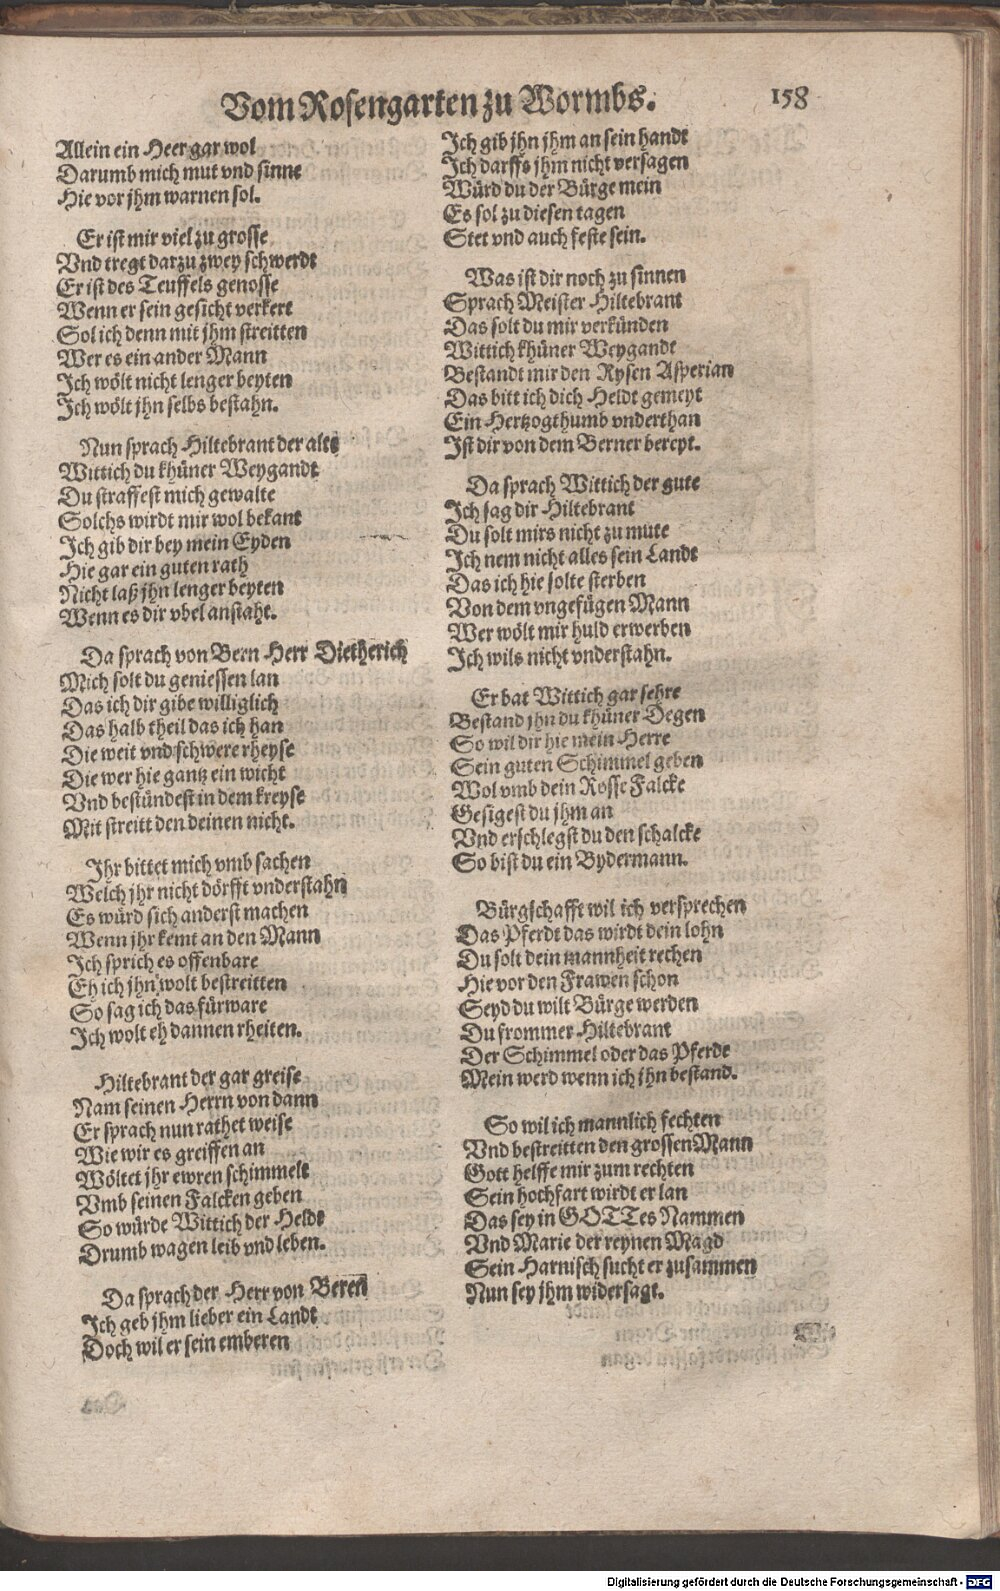 Vom Rosengarten zu Wormbs. 158
Allein ein Heer gar wol
Darumb mich mut vnd sinne
Hie vor jhm warnen sol.
Er ist mir viel zu grosse
Vnd tregt darzu zwey schwerdt
Er ist des Teuffels genosse
Wenn er sein gesicht verkert
Sol ich denn mit jhm streitten
Wer es ein ander Mann
Ich wölt nicht lenger beyten
Ich wölt jhn selbs bestahn.
Nun sprach Hiltebrant der alte
Wittich du khüner Weygandt
Du straffest mich gewalte
Solchs wirdt mir wol bekant
Ich gib dir bey mein Eyden
Hie gar ein guten rath
Nicht laß jhn lenger beyten
Wenn es dir vbel anstaht.
Da sprach von Bern Herr Dietherich
Mich solt du geniessen lan
Das ich dir gibe williglich
Das halb theil das ich han
Die weit vnd schwere rheyse
Die wer hie gantz ein wicht
Vnd bestündest in dem kreyse
Mit streitt den deinen nicht.
Ihr bittet mich vmb sachen
Welch jhr nicht dörfft vnderstahn
Es würd sich anderst machen
Wenn jhr kemt an den Mann
Ich sprich es offenbare
Eh ich jhn wolt bestreitten
So sag ich das fürware
Ich wolt eh dannen rheiten.
Hiltebrant der gar greise
Nam seinen Herrn von dann
Er sprach nun rathet weise
Wie wir es greiffen an
Wöltet jhr ewren schimmelt
Vmb seinen Falcken geben
So würde Wittich der Heldt
Drumb wagen leib vnd leben.
Da sprach der Herr von Beren
Ich geb jhm lieber ein Landt
Doch wil er sein emberen
Ich gib jhn jhm an sein handt
Ich darffs jhm nicht versagen
Würd du der Bürge mein
Es sol zu diesen tagen
Stet vnd auch feste sein.
Was ist dir noch zu sinnen
Sprach Meister Hiltebrant
Das solt du mir verkünden
Wittich khüner Weygandt
Bestandt mir den Rysen Asperian
Das bitt ich dich Heldt gemeyt
Ein Hertzogthumb vnderthan
Ist dir von dem Berner bereyt.
Da sprach Wittich der gute
Ich sag dir Hiltebrant
Du solt mirs nicht zu mute
Ich nem nicht alles sein Landt
Das ich hie solte sterben
Von dem vngefügen Mann
Wer wölt mir huld erwerben
Ich wils nicht vnderstahn.
Er bat Wittich gar sehre
Bestand jhn du khüner Degen
So wil dir hie mein Herre
Sein guten Schimmel geben
Wol vmb dein Rosse Falcke
Gesigest du jhm an
Vnd erschlegst du den schalcke
So bist du ein Bydermann.
Bürgschafft wil ich versprechen
Das Pferdt das wirdt dein lohn
Du solt dein mannheit rechen
Hie vor den Frawen schon
Seyd du wilt Bürge werden
Du frommer Hiltebrant
Der Schimmel oder das Pferde
Mein werd wenn ich jhn bestand.
So wil ich mannlich fechten
Vnd bestreitten den grossen Mann
Gott helffe mir zum rechten
Sein hochfart wirdt er lan
Das sey in GOTTes Nammen
Vnd Marie der reynen Magd
Sein Harnisch sucht er zusammen
Nun sey jhm widersagt.
Digitalisierung gefördert durch die Deutsche Forschungsgemeinschaft - DFG